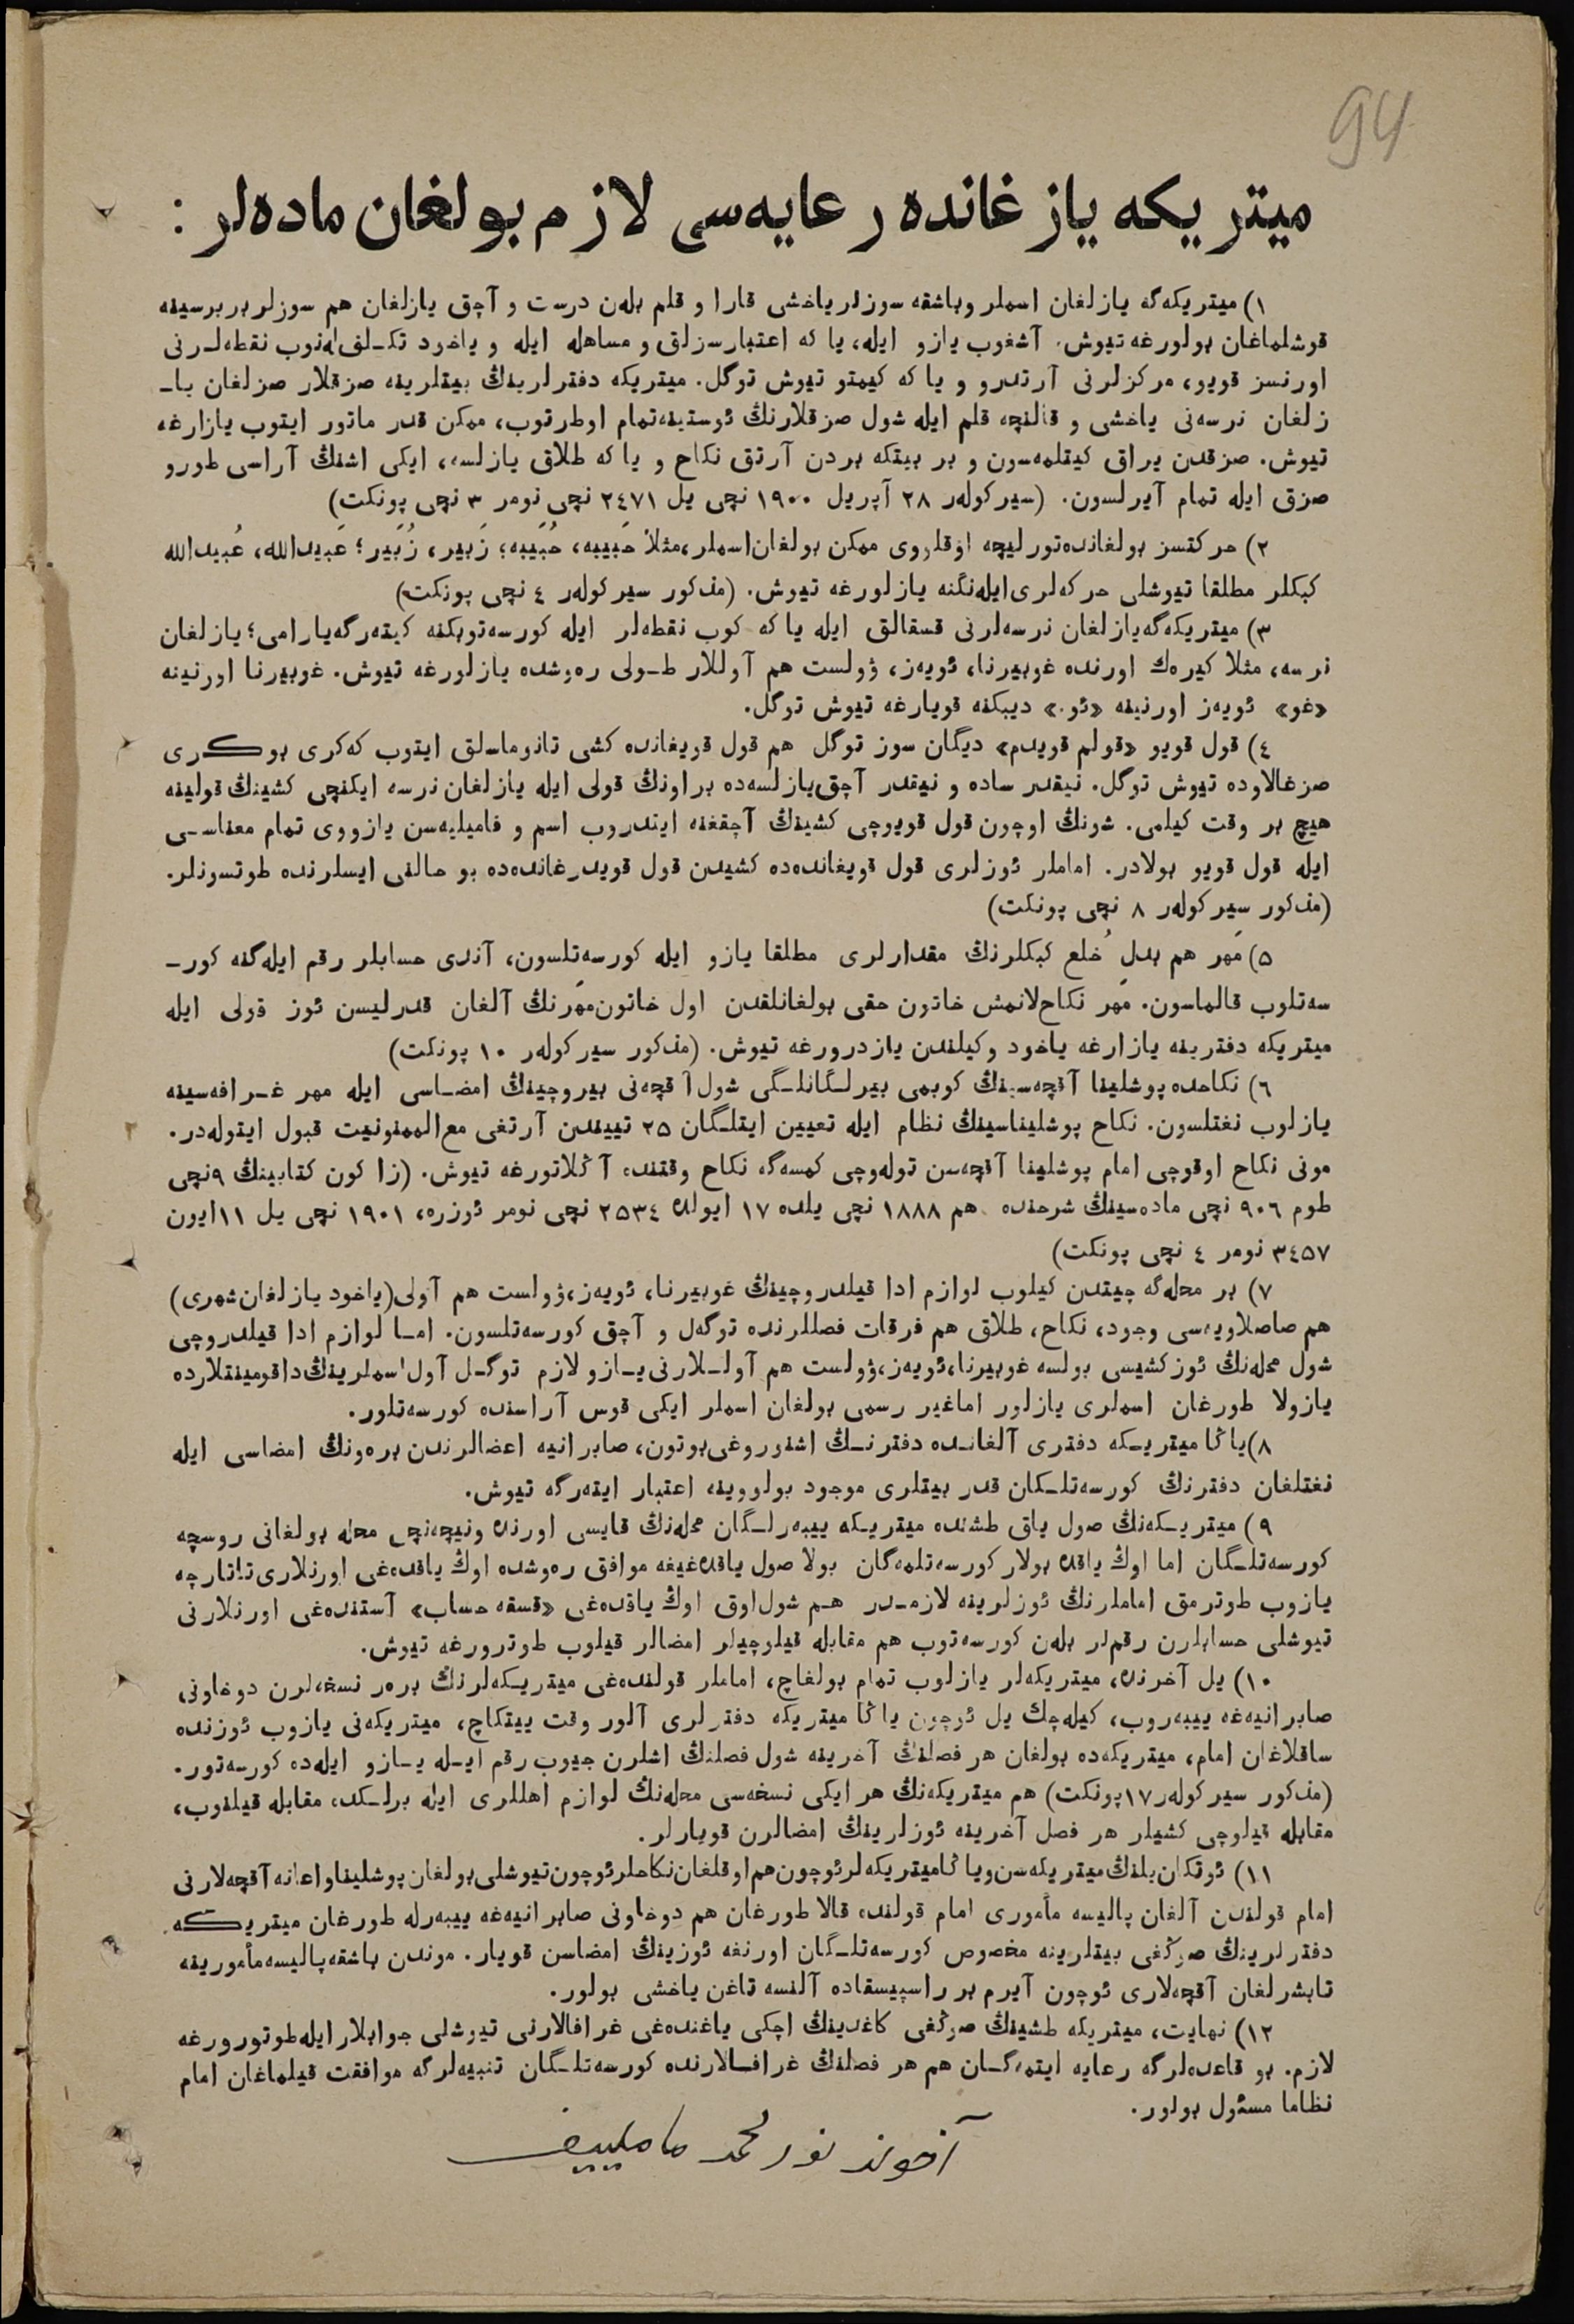 94
میتریكه یازغانده رعایه‌سی لازم بولغان ماده‌لر :
۱) میتریكه‌گه یازلغان اسملر وباشقه سوزلر یاخشی قارا و قلم بله‌ن درست و آچق یازلغان هم سوزلر بربرسینه
قوشلماغان بولورغه تیوش. آشغوب یازو ایله، یا كه اعتبارسزلق و مساهله ایله و یاخود تكـلف‌له‌نوب نقطه‌لـرنی
اورنسز قویو، مركزلرنی آرتدرو و یا كه كیمتو تیوش توگل. میتریكه دفترلرینڭ بیتلرینه صزقلار صزلغان یا۔
زلغان نرسه‌نی یاخشی و قالنچه قلم ایله شول صزقلارنڭ ئوستینه‌تمام اوطرتوب، ممكن قدر ماتور ایتوب یازارغه
تیوش. صزقدن یراق كیتلمه‌سون و بر بیتكه بردن آرتق نكاح و یا كه طلاق یازلسه، ایكی اشنڭ آراسی طورو
صزق ایله تمام آیرلسون. (سیركوله‌ر ۲۸ آپریل ۱۹۰۰ نچی یل ۲٤۷۱ نچی نومر ۳ نچی پونكت)
۲) حركتسز بولغانده‌تورلیچه اوقلووی ممكن بولغان‌اسملر،مثلاً حَبیبه، حُبَیبه؛ زَبیر، زُبَیر؛ عَبیدالله، عُبیدالله
كبكلر مطلقا تیوشلی حركه‌لری‌ایله‌نگنه یازلورغه تیوش. (مذكور سیركوله‌ر ٤ نچی پونكت)
۳) میتریكه‌گه‌یازلغان نرسه‌لرنی قسقالق ایله یا كه كوب نقطه‌لر ایله كورسه‌توبكنه كیته‌رگه‌یارامی؛ یازلغان
نرسه، مثلا كیره‌ك اورنده غوبیرنا، ئویه‌ز، ۋولست هم آوللار طـولی ره‌وشده یازلورغه تیوش. غوبیرنا اورنینه
«غو» ئویه‌ز اورنینه «ئو.» دیبكنه قویارغه تیوش توگل.
٤) قول قویو «قولم قویدم» دیگان سوز توگل هم قول قویغانده كشی تانوماسلق ایتوب كه‌كری بوكـری
صزغالاوده تیوش توگل. نیقدر ساده و نیقدر آچق‌یازلسه‌ده براونڭ قولی ایله یازلغان نرسه ایكنچی كشینڭ قولینه
هیچ بر وقت كیلمی. شونڭ اوچون قول قویوچی كشینڭ آچقغنه ایتدروب اسم و فامیلیه‌سن یازووی تمام معناسـی
ایله قول قویو بولادر. اماملر ئوزلری قول قویغانده‌ده كشیدن قول قویدرغانده‌ده بو حالنی ایسلرنده طوتسونلر.
(مذكور سیركوله‌ر ۸ نچی پونكت)
۵) مَهر هم بدل خُلع كبكلرنڭ مقدارلری مطلقا یازو ایله كورسه‌تلسون، آندی حسابلر رقم ایله‌گنه كور۔
سه‌تلوب قالماسون. مَهر نكاح‌لانمش خاتون حقی بولغانلقدن اول خاتون‌مهرنڭ آلغان قدرلیسن ئوز قولی ایله
میتریكه دفترینه یازارغه یاخود وكیلندن یازدرورغه تیوش. (مذكور سیركوله‌ر ۱۰ پونكت)
٦) نكاحده پوشلینا آقچه‌سینڭ كوبمی بیرلـگانلـگی شول آقچه‌نی بیروچینڭ امضـاسی ایله مهر غـرافه‌سینه
یازلوب نغتلسون. نكاح پوشلیناسینڭ نظام ایله تعیین ایتلـگان ۲۵ تییندن آرتغی مع‌الممنونیت قبول ایتوله‌در.
مونی نكاح اوقوچی امام پوشلینا آقچه‌سن توله‌وچی كمسه‌گه نكاح وقتنده آڭلاتورغه تیوش. (زاكون كتابینڭ ۹نچی
طوم ۹۰٦ نچی ماده‌سینڭ شرحنده هم ۱۸۸۸ نچی یلده ۱۷ ایولده ۲۵۳٤ نچی نومر ئوزره، ۱۹۰۱ نچی یل ۱۱ایون
۳٤۵۷ نومر ٤ نچی پونكت)
۷) بر محله‌گه چیتدن كیلوب لوازم ادا قیلدروچینڭ غوبیرنا، ئویه‌ز،ۋولست هم آولی(یاخود یازلغان‌شهری)
هم صاصلاویه‌سی وجود، نكاح، طلاق هم فرقات فصللرنده توگه‌ل و آچق كورسه‌تلسون. امـا لوازم ادا قیلدروچی
شول محله‌نڭ ئوز كشیسی بولسه غوبیرنا،ئویه‌ز،ۋولست هم آولـلارنی یـازو لازم توگـل آول اسملرینڭ‌داقومینتلارده
یازولا طورغان اسملری یازلور اماغیر رسمی بولغان اسملر ایكی قوس آراسنده كورسه‌تلور.
۸)یاڭا میتریـكه دفتری آلغانـده دفترنـڭ اشنوروغی‌بوتون، صابرانیه اعضالرندن بره‌ونڭ امضاسی ایله
نغتلغان دفترنڭ كورسه‌تلـكان قدر بیتلری موجود بولووینه اعتبار ایته‌رگه تیوش.
۹) میتریـكه‌نڭ صول یاق طشنده میتریـكه ییبه‌رلـگان محله‌نڭ قایسی اورنده ونیچه‌نچی محله بولغانی روسچه
كورسه‌تلـگان اما اوڭ یاقده بولار كورسه‌تلمه‌گان بولا صول یاقده‌غیغه موافق ره‌وشده اوڭ یاقده‌غی اورنلاری تاتارچه
یازوب طوترمق اماملرنڭ ئوزلرینه لازمـدر هـم شول‌اوق اوڭ یاقده‌غی «قسقه حساب» آستنده‌غی اورنلارنی
تیوشلی حسابلرن رقم‌لر بله‌ن كورسه‌توب هم مقابله قیلوچیلر امضالر قیلوب طوترورغه تیوش.
۱۰) یل آخرنده، میتریكه‌لر یازلوب تمام بولغاچ، اماملر قولنده‌غی میتریـكه‌لرنڭ بره‌ر نسخه‌لرن دوخاونی
صابرانیه‌غه ییبه‌روب، كیله‌چك یل ئوچون یاڭا میتریكه دفترلری آلور وقت ییتكاچ، میتریكه‌نی یازوب ئوزنده
ساقلاغان امام، میتریكه‌ده بولغان هر فصلنڭ آخرینه شول فصلنڭ اشلرن جیوب رقم ایـله یـازو ایله‌ده كورسه‌تور.
(مذكور سیركوله‌ر۱۷پونكت) هم میتریكه‌نڭ هر ایكی نسخه‌سی محله‌نڭ لوازم اهللری ایله برلـكده مقابله قیلنوب،
مقابله قیلوچی كشیلر هر فصل آخرینه ئوزلرینڭ امضالرن قویارلر.
۱۱) ئوتكان‌یلنڭ‌میتریكه‌سن‌ویاڭامیتریكه‌لرئوچون‌هم‌اوقلغان‌نكاحلرئوچون‌تیوشلی‌بولغان‌پوشلیناواعانه آقچه‌لارنی
امام قولندن آلغان پالیسه مأموری امام قولنده قالا طورغان هم دوخاونی صابرانیه‌غه ییبه‌رله طورغان میتریـكه
دفترلرینڭ صوڭغی بیتلرینه مخصوص كورسه‌تلـگان اورنغه ئوزینڭ امضاسن قویار. موندن باشقه‌پالیسه‌مأمورینه
تابشرلغان آقچه‌لاری ئوچون آیرم بر راسپیسقاده آلنسه تاغن یاخشی بولور.
۱۲) نهایت، میتریكه طشینڭ صوڭغی كاغدینڭ اچكی یاغنده‌غی غرافالارنی تیوشلی جوابلار ایله‌طوتورورغه
لازم. بو قاعده‌لرگه رعایه ایتمه‌گـان هم هر فصلنڭ غرافـالارنده كورسه‌تلـگان تنبیه‌لرگه موافقت قیلماغان امام
نظاما مسئول بولور.
آخوند نور محمد ماملییف